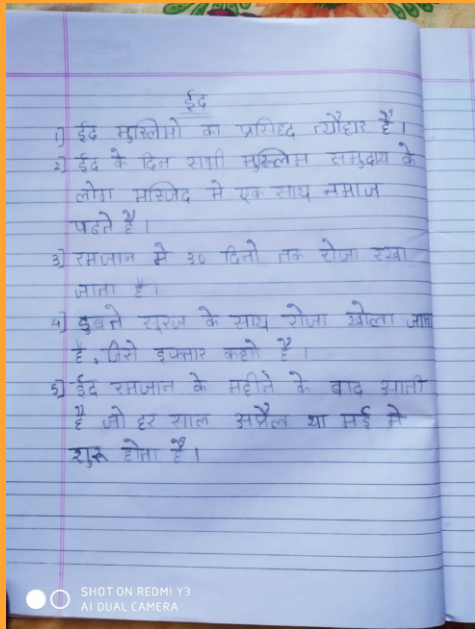 ईद
1) ईद मुस्लिमो का प्रसिध्द त्यौहार है।
2) ईद के दिन सभी मुस्लिम समुदाय के
लोग मस्जिद मे एक साथ नमाज
पढते है।
3) रमजान मे 30 दिनो तक रोजा रखा
जाता है।
4) डुबते सुरज के साथ रोजा खोला जाता
है, जिसे इफ्तार कहते है।
5) ईद रमजान के महीने के बाद आती
है जो हर साल अप्रैल या मई मे
शुरू होता है।
SHOT ON REDMI Y3
AI DUAL CAMERA